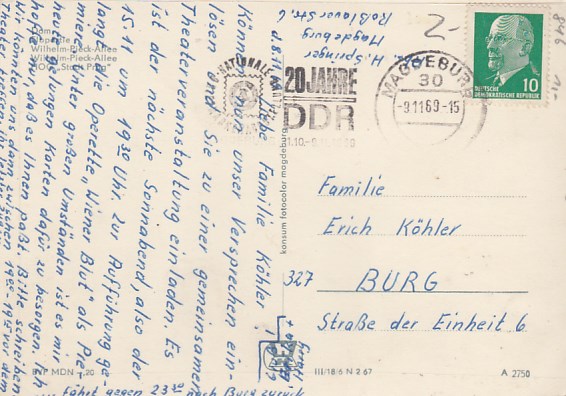 H. Springer
Magdeburg
Roßlauer Str. 6
d. 8.11.69
Liebe Familie Köhler!
Können wir unser Versprechen ein-
lösen und Sie zu einer gemeinsamen
Theaterveranstaltung einladen. Es
ist der nächste Sonnabend, also der
15.11 um 19³⁰ Uhr. Zur Aufführung ge-
langt die Operette „Wiener Blut“ als Pre-
miere. Unter großen Umständen ist es mir
gelungen Karten dafür zu besorgen. Ich
hoffe, daß es Ihnen paßt. Bitte schreiben
Wir könnten uns dann zwischen
vor dem
Theater treffen.
fährt gegen 23³⁰ nach Burg zurück
Dom
Wilhelm-Pieck-Allee
Wilhelm-Pieck-Allee
HOG „Stadt Prag“
BVP MDN -,20
konsum fotocolor magdeburg
III/18/6 N 2 67
A 2750
NATIONALE
20 JAHRE
DDR
MAGDEBURG
30
-9.11.69-15
DEUTSCHE
DEMOKRATISCHE REPUBLIK
10
2-
846
Familie
Erich Köhler
327 BURG
Straße der Einheit 6